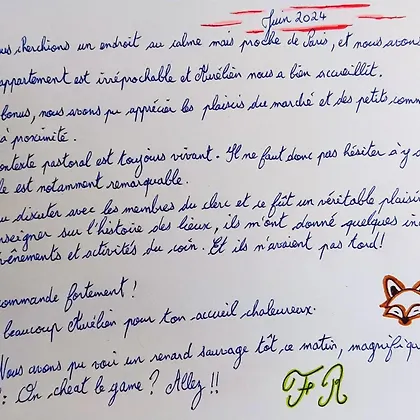 Juin 2024
us cherchions un endroit au calme mais proche de Paris, et nous avons
appartement est irréprochable et Aurélien nous a bien accueillit.
bonus, nous avons pu apprécier les plaisirs du marché et des petits comm
à proximité.
ontexte pastoral est toujours vivant. Il ne faut donc pas hésiter à y a
le est notamment remarquable.
u discuter avec les membres du clerc et ce fût un véritable plaisir
nseigner sur l'histoire des lieux, ils m'ont donné quelques in
évènements et activités du coin. Et ils n'avaient pas tord!
commande fortement!
beaucoup Aurélien pour ton accueil chaleureux.
Nous avons pu voir un renard sauvage tôt, ce matin, magnifiqu
: On cheat le game? Allez!!
FR